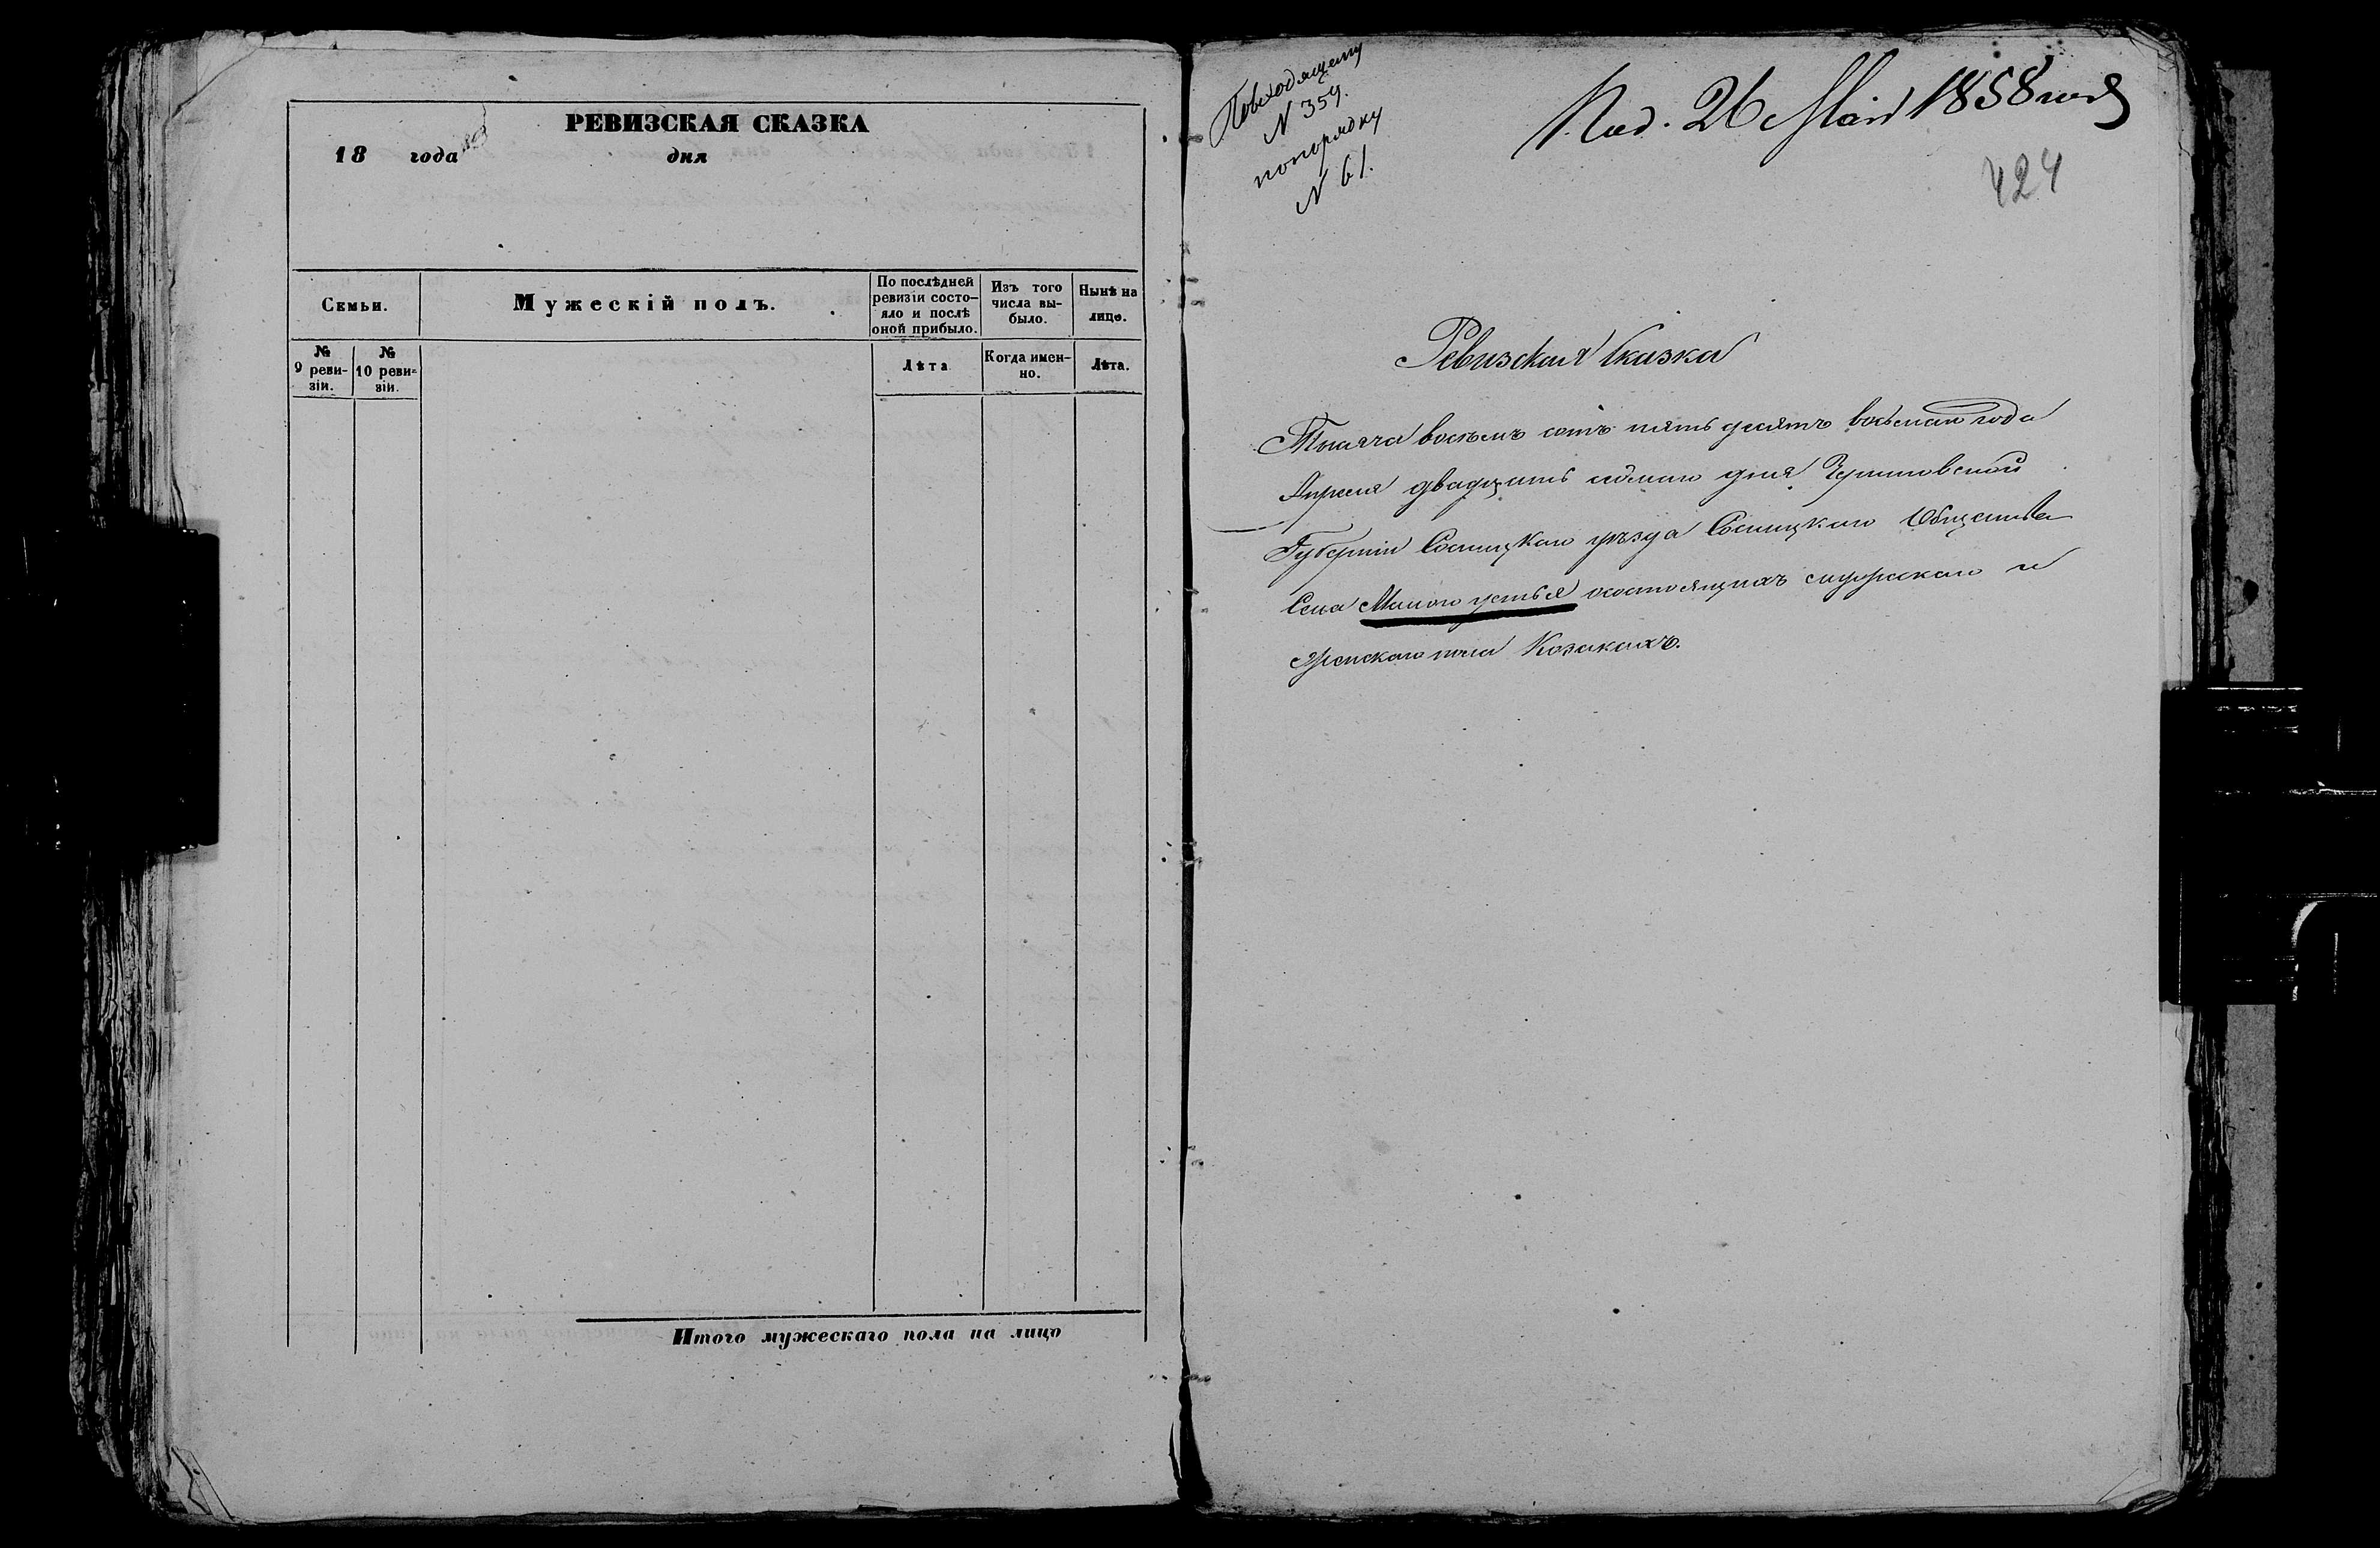 РЕВИЗСКАЯ СКАЗКА
18 года дня
Семьи.
Мужескій полъ.
По послѣдней
ревизіи состо-
яло и послѣ
оной прибыло.
Изъ того
числа вы-
было.
Нынѣ на
лице.
№
9 реви-
зіи.
№
10 реви-
зіи.
Лѣта
Когда имен-
но.
Лѣта.
Итого мужескаго пола на лицо
Повходящему
N 359.
попорядку
N 61.
Под. 26 Мая 1858 года
424
Ревизская Сказка
Тысяча восемъ сотъ пять десятъ восьмаго года
Апреля двадцать седмаго дня Черниговской
Губерніи Сосницкаго уѣзда Сосницкаго Общества
Села Малого устья осостоящихъ мужескаго и
женскаго пола Козакахъ.